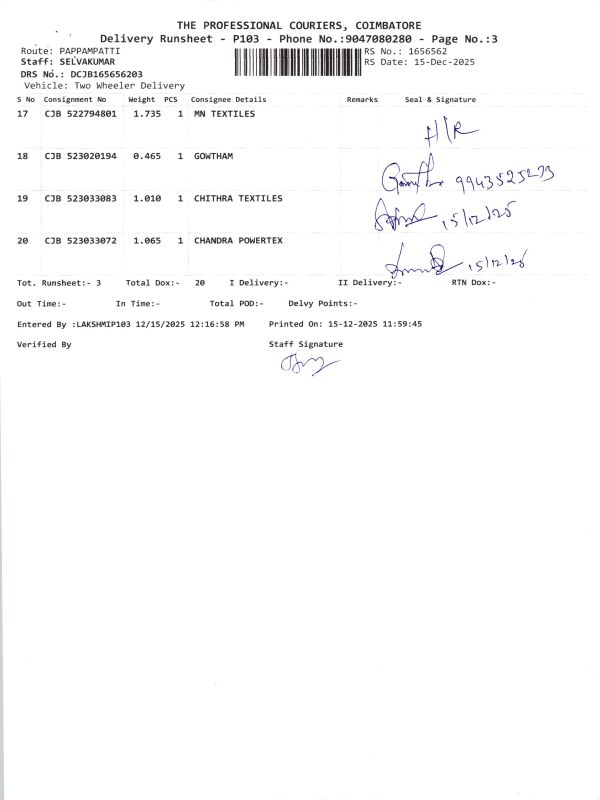 THE PROFESSIONAL COURIERS, COIMBATORE
Delivery Runsheet - P103 - Phone No.:9047080280 - Page No.:3
Route: PAPPAMPATTI RS No.: 1656562
Staff: SELVAKUMAR RS Date: 15-Dec-2025
DRS No.: DCJB165656203
Vehicle: Two Wheeler Delivery
S No Consignment No Weight PCS Consignee Details Remarks Seal & Signature
17 CJB 522794801 1.735 1 MN TEXTILES
H/R
18 CJB 523020194 0.465 1 GOWTHAM
9943525273
19 CJB 523033083 1.010 1 CHITHRA TEXTILES
15/12/25
20 CJB 523033072 1.065 1 CHANDRA POWERTEX
15/12/25
Tot. Runsheet:- 3 Total Dox:- 20 I Delivery:- II Delivery:- RTN Dox:-
Out Time:- In Time:- Total POD:- Delvy Points:-
Entered By :LAKSHMIP103 12/15/2025 12:16:58 PM Printed On: 15-12-2025 11:59:45
Verified By Staff Signature